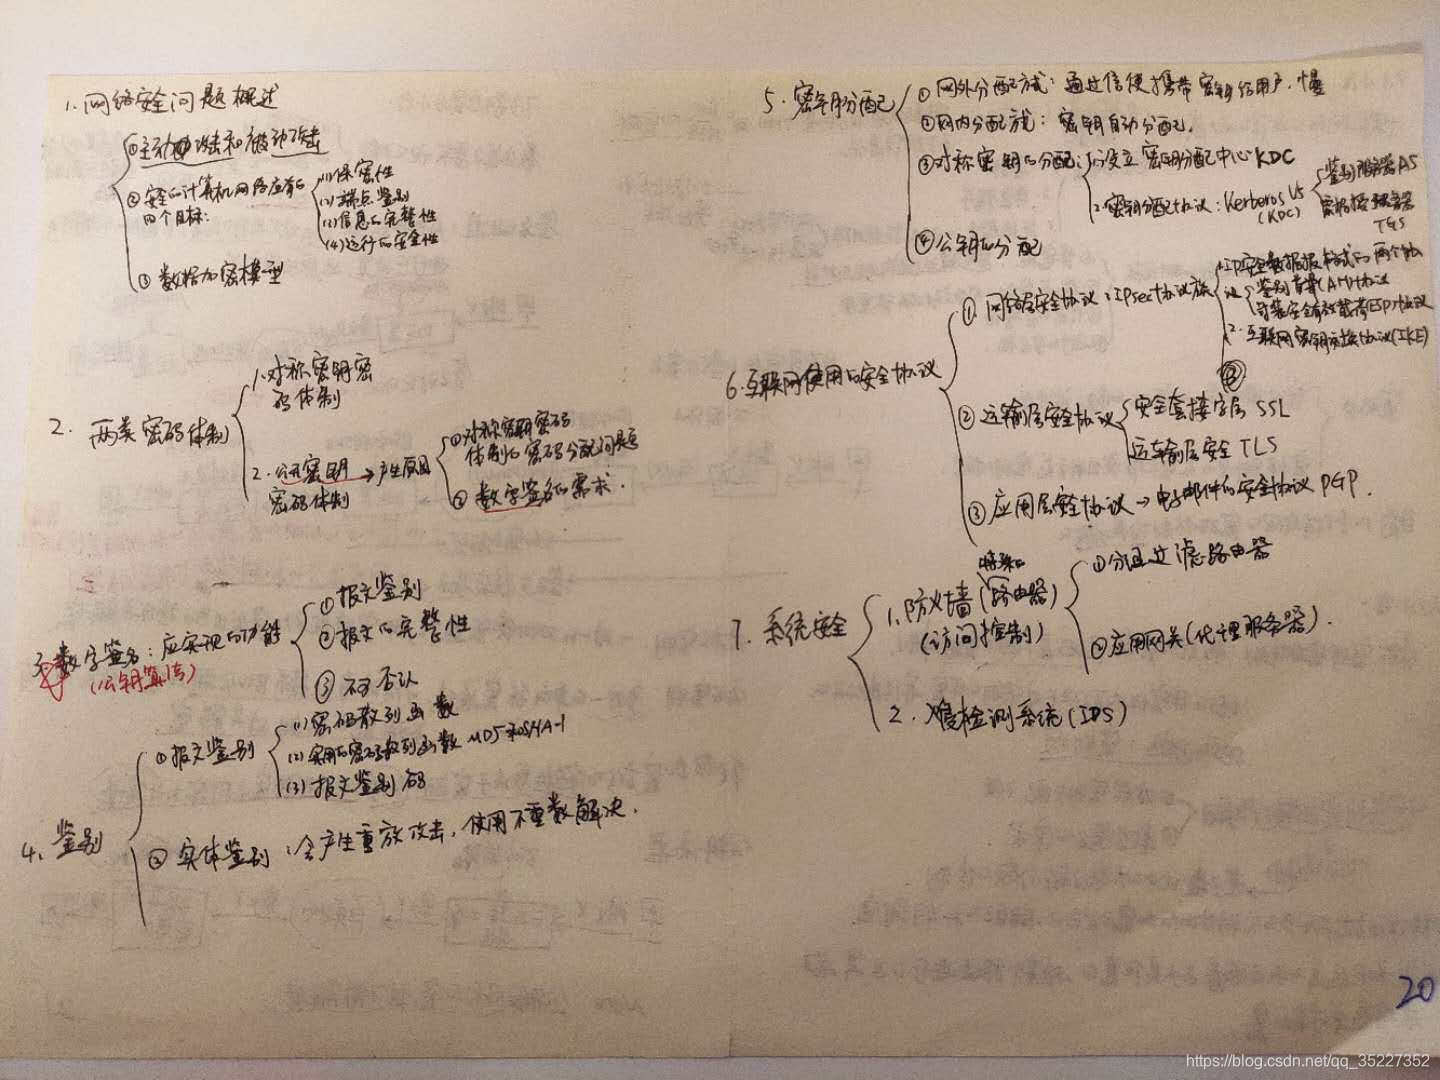 1.网络安全问题概述
①主动攻击和被动攻击
②安全的计算机网络应有的
四个目标:
(1)保密性
(2)端点鉴别
(3)信息的完整性
(4)运行的安全性
③数据加密模型
2.两类密码体制
1.对称密钥密
码体制
2.公钥密钥→产生原因
密码体制
①对称密钥密码
体制的密码分配问题
②数字签名的需求.
3.数字签名:应实现的功能
(公钥算法)
①报文鉴别
②报文的完整性
③不可否认
4、鉴别
①报文鉴别
(1)密码散列函数
(2)实用的密码散列函数MD5和SHA-1
(3)报文鉴别码
②实体鉴别:会产生重放攻击,使用不重数解决.
5.密钥分配
①网外分配方式:通过信使携带密钥给用户.慢
②网内分配方式:密钥自动分配.
③对称密钥的分配:
1.设立密钥分配中心KDC
2.密钥分配协议:Kerberos V5
(KDC)
鉴别服务器AS
票据授予服务器
TGS
④公钥的分配
6.互联网使用的安全协议
①网络层安全协议:IPsec协议族
1.IP安全数据报格式的两个协
议
鉴别首部(AH)协议
封装安全有效载荷(ESP)协议
2.互联网密钥交换协议(IKE)
②运输层安全协议
安全套接字层SSL
运输层安全TLS
③应用层安全协议→电子邮件的安全协议PGP.
7.系统安全
特殊的
1.防火墙(路由器)
(访问控制)
①分组过滤路由器
②应用网关(代理服务器).
2.入侵检测系统(IDS)
20
https://blog.csdn.net/qq_35227352